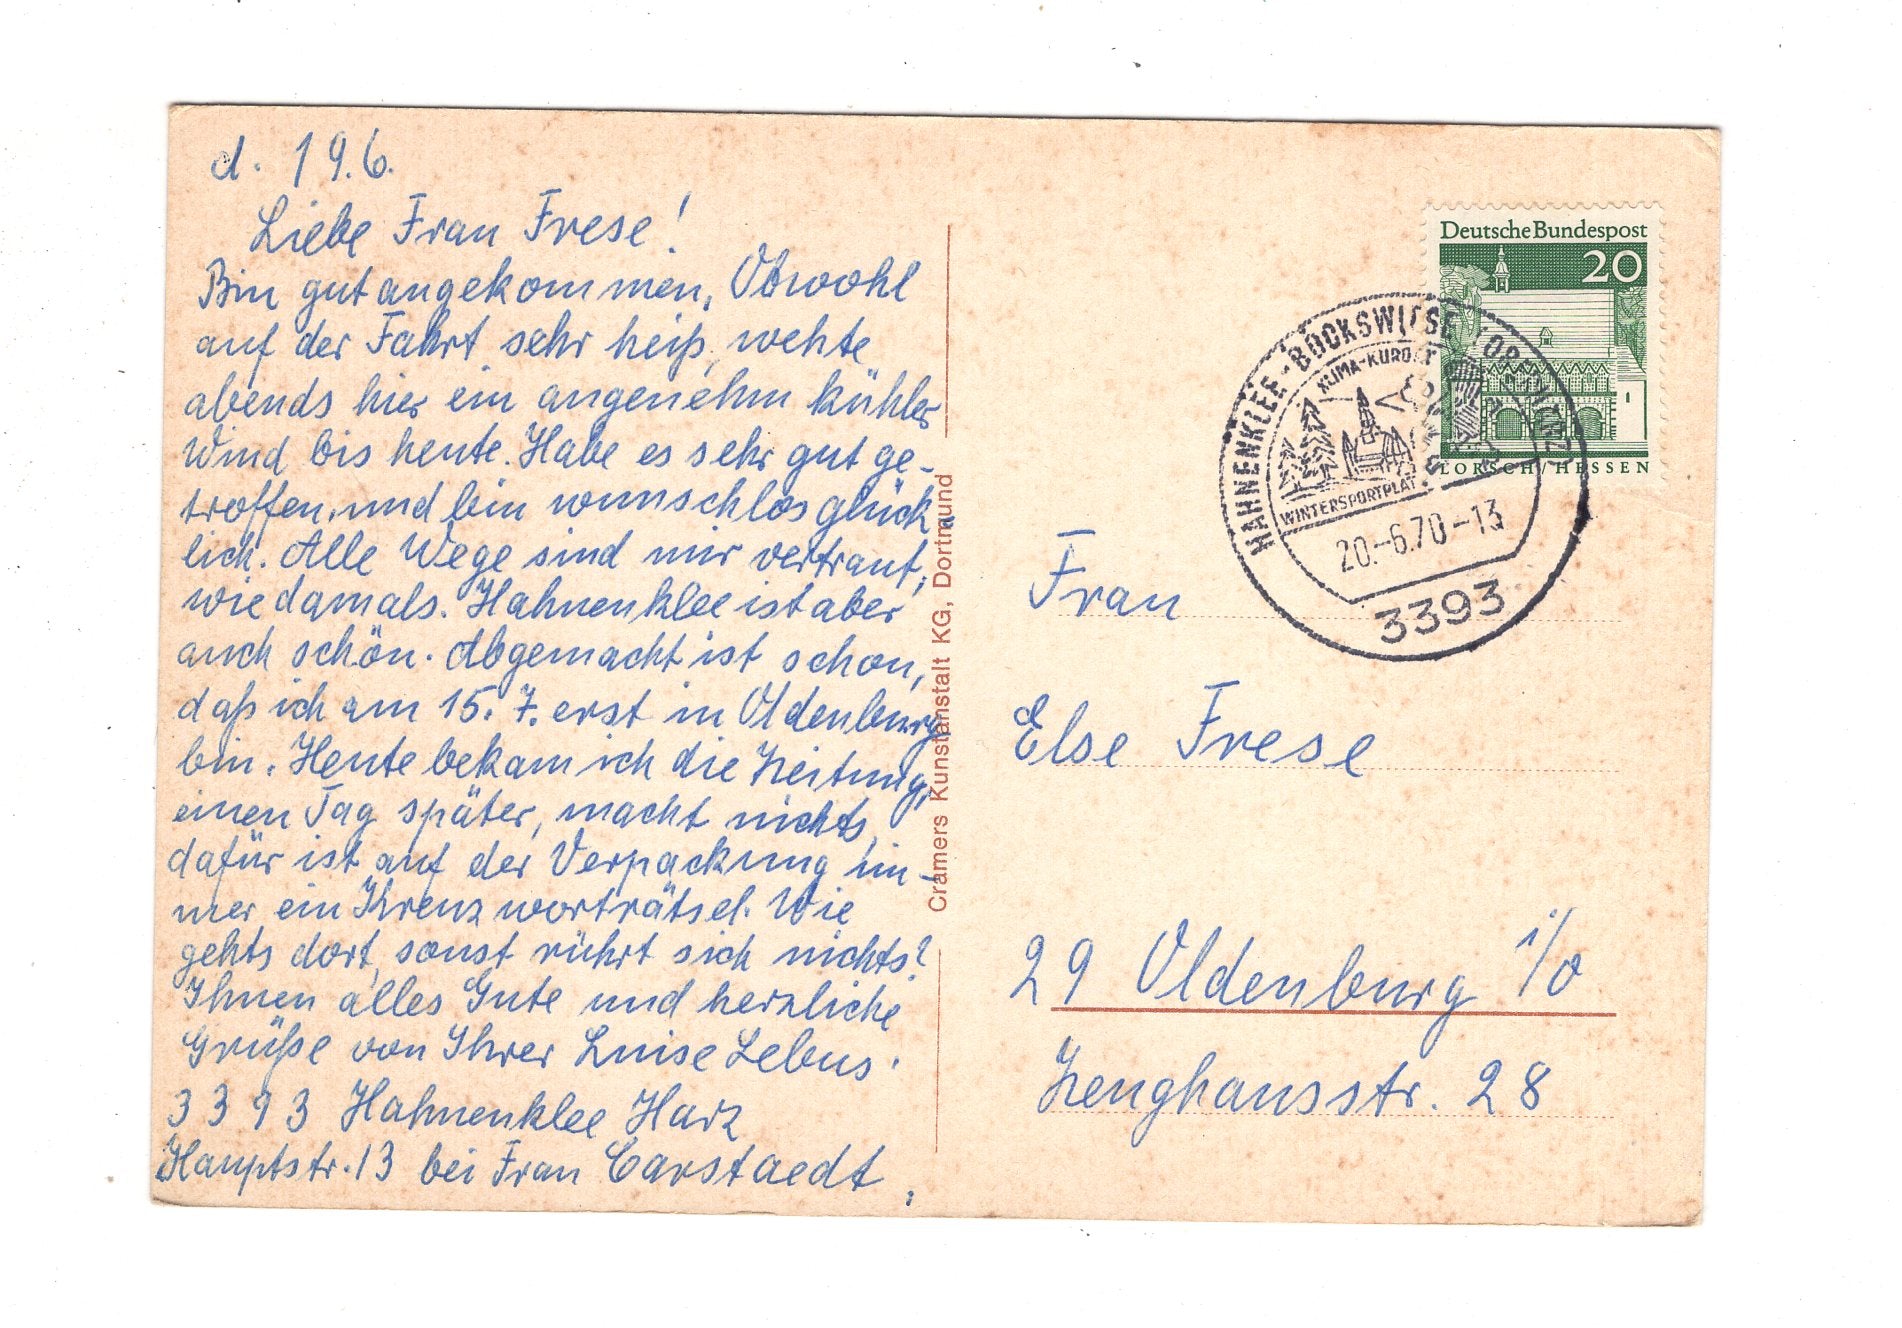 d. 19.6.
Liebe Frau Frese!
Bin gut angekommen, Obwohl
auf der Fahrt sehr heiß, wehte
abends hier ein angenehm kühler
Wind bis heute. Habe es sehr gut ge-
troffen, und bin wunschlos glück-
lich. Alle Wege sind mir vertraut,
wie damals. Hahnenklee ist aber
auch schön. Abgemacht ist schon,
daß ich am 15. 7. erst in Oldenburg
bin. Heute bekam ich die Zeitung,
einen Tag später, macht nichts,
dafür ist auf der Verpackung im-
mer ein Kreuzworträtsel. Wie
gehts dort, sonst rührt sich nichts?
Ihnen alles Gute und herzliche
Grüße von Ihrer Luise Lebus.
3393 Hahnenklee Harz
Hauptstr. 13 bei Frau Carstaedt,
Cramers Kunstanstalt KG, Dortmund
Deutsche Bundespost
20
LORSCH/HESSEN
HAHNENKLEE-BOCKSWIESE (OBERHARZ)
KLIMA-KURORT
WINTERSPORTPLATZ
20.-6.70-13
3393
Frau
Else Frese
29 Oldenburg i/O
Zeughausstr. 28